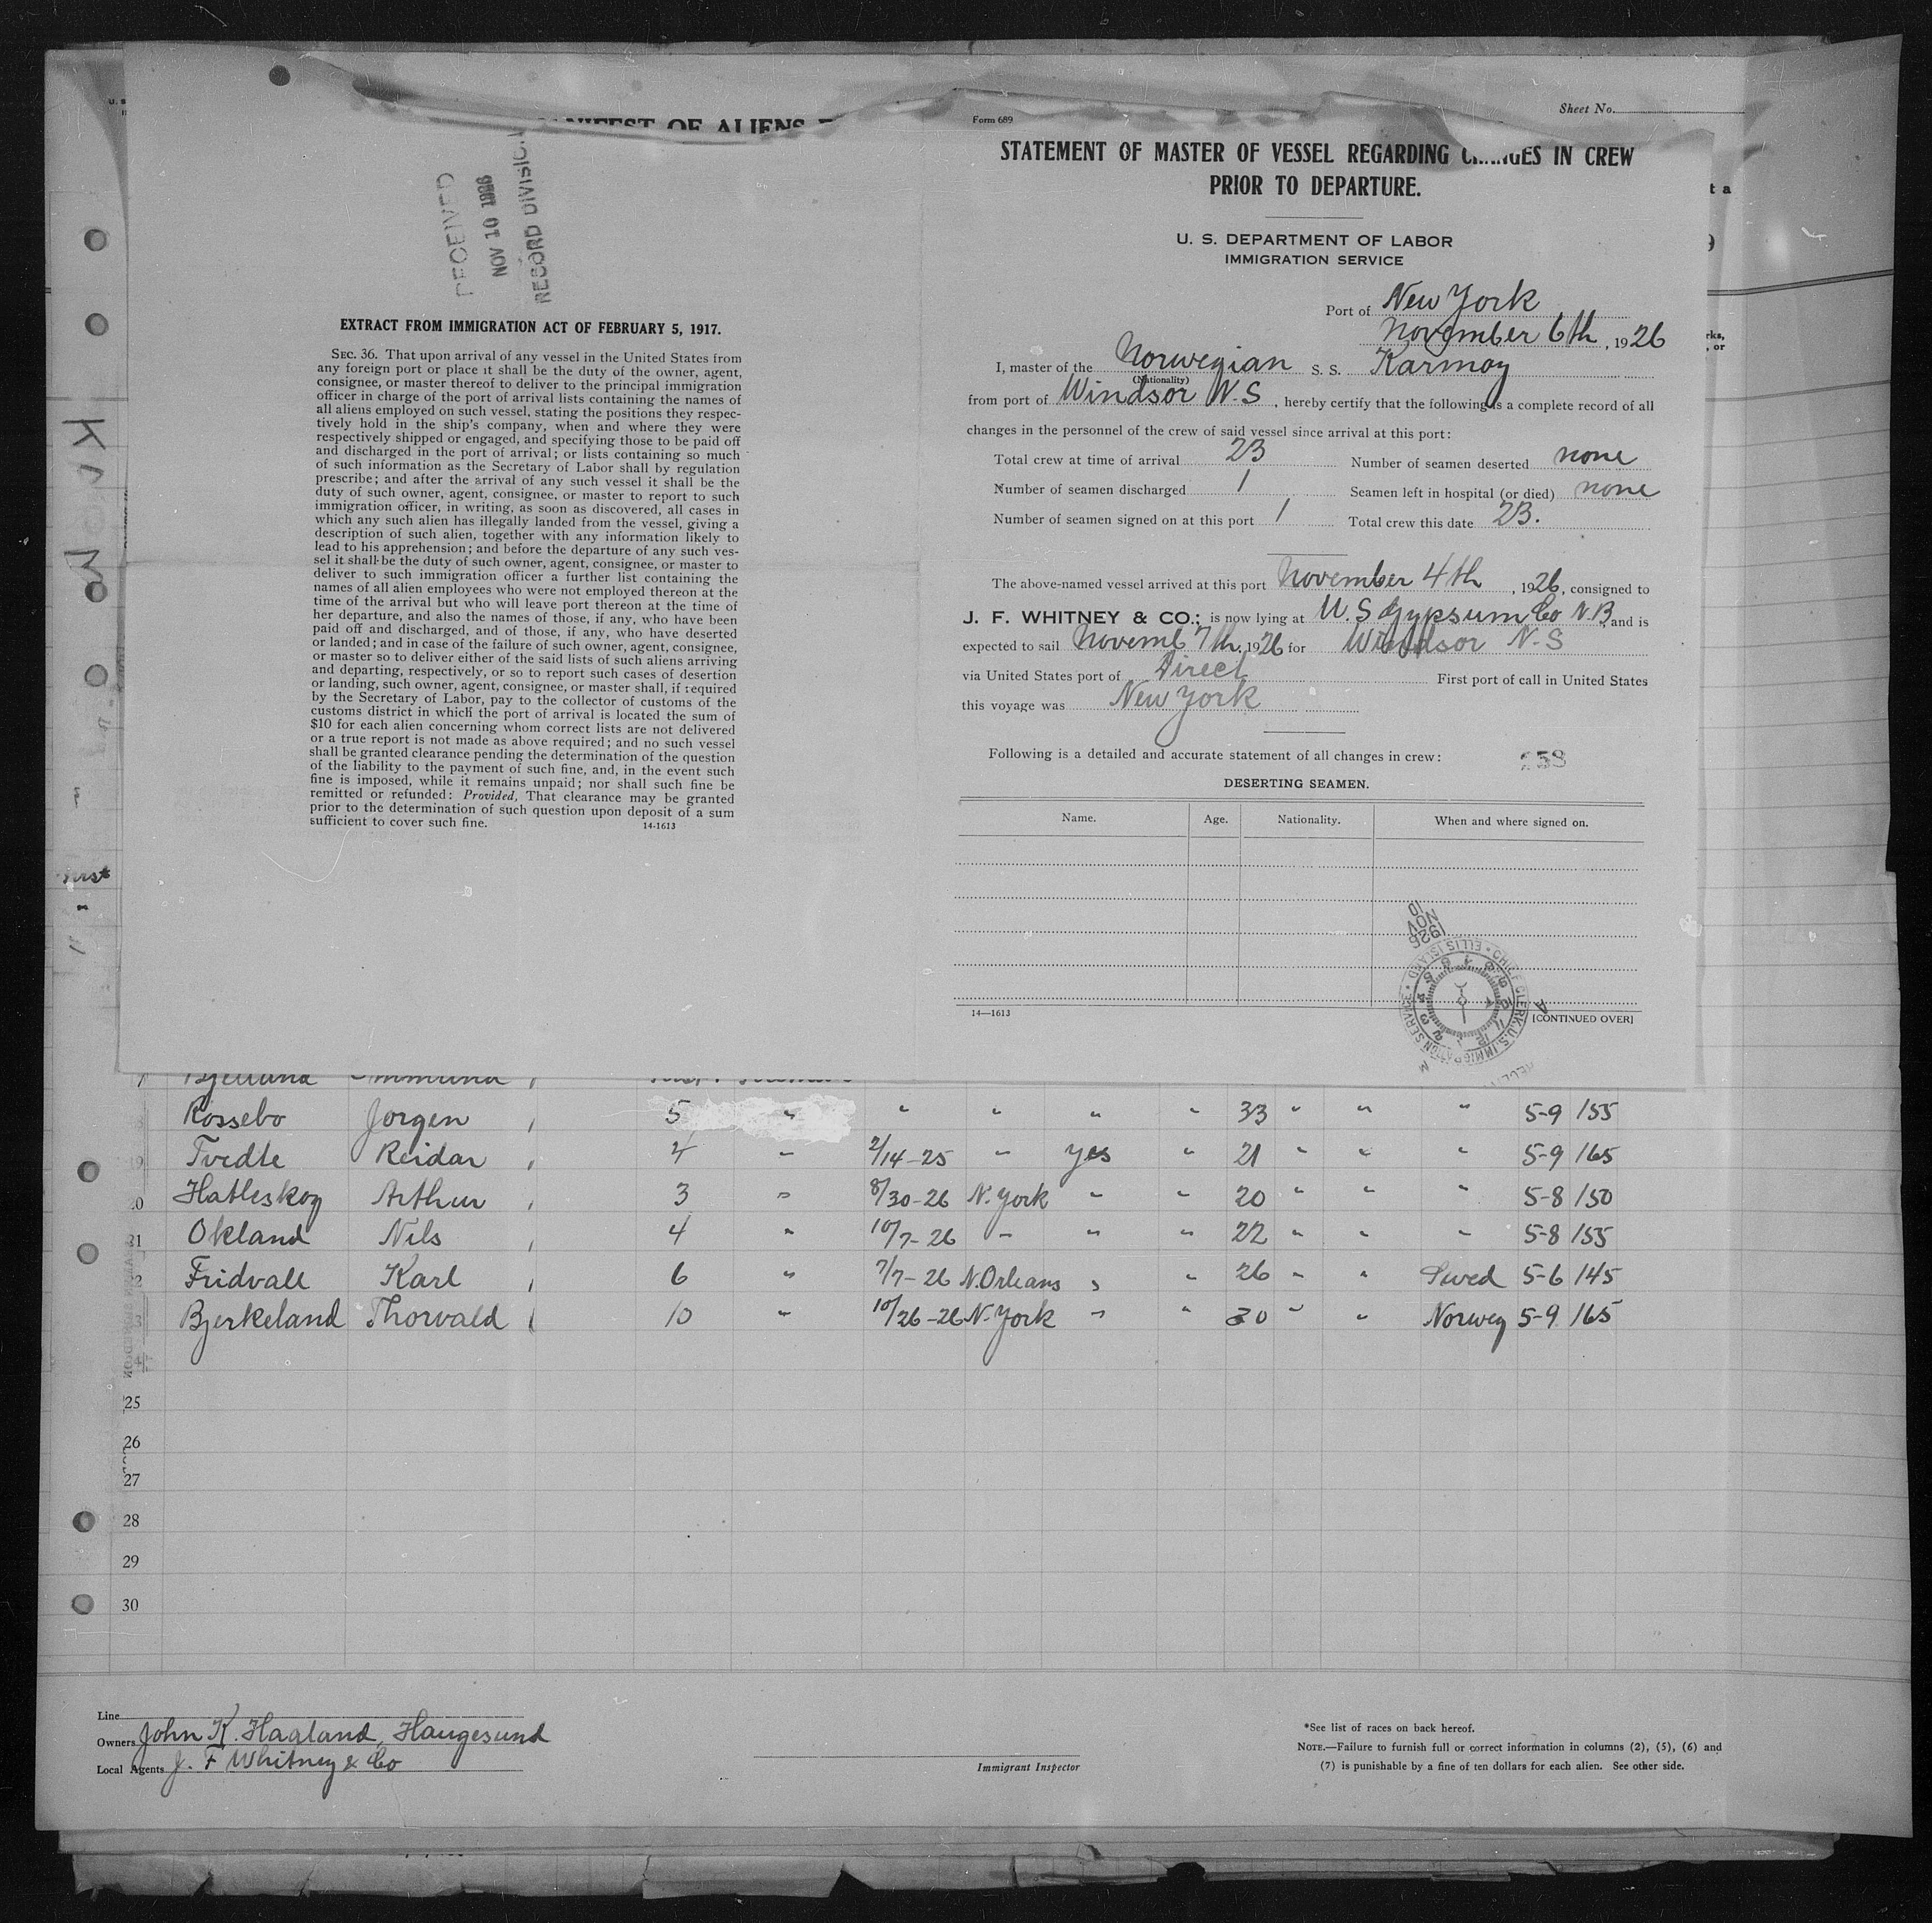 Sheet No.
MANIFEST OF ALIENS
RECEIVED
NOV 10 1926
RECORD DIVISION
EXTRACT FROM IMMIGRATION ACT OF FEBRUARY 5, 1917.
SEC. 36. That upon arrival of any vessel in the United States from
any foreign port or place it shall be the duty of the owner, agent,
consignee, or master thereof to deliver to the principal immigration
officer in charge of the port of arrival lists containing the names of
all aliens employed on such vessel, stating the positions they respec-
tively hold in the ship's company, when and where they were
respectively shipped or engaged, and specifying those to be paid off
and discharged in the port of arrival; or lists containing so much
of such information as the Secretary of Labor shall by regulation
prescribe; and after the arrival of any such vessel it shall be the
duty of such owner, agent, consignee, or master to report to such
immigration officer, in writing, as soon as discovered, all cases in
which any such alien has illegally landed from the vessel, giving a
description of such alien, together with any information likely to
lead to his apprehension; and before the departure of any such ves-
sel it shall be the duty of such owner, agent, consignee, or master to
deliver to such immigration officer a further list containing the
names of all alien employees who were not employed thereon at the
time of the arrival but who will leave port thereon at the time of
her departure, and also the names of those, if any, who have been
paid off and discharged, and of those, if any, who have deserted
or landed; and in case of the failure of such owner, agent, consignee,
or master so to deliver either of the said lists of such aliens arriving
and departing, respectively, or so to report such cases of desertion
or landing, such owner, agent, consignee, or master shall, if required
by the Secretary of Labor, pay to the collector of customs of the
customs district in which the port of arrival is located the sum of
$10 for each alien concerning whom correct lists are not delivered
or a true report is not made as above required; and no such vessel
shall be granted clearance pending the determination of the question
of the liability to the payment of such fine, and, in the event such
fine is imposed, while it remains unpaid; nor shall such fine be
remitted or refunded: Provided, That clearance may be granted
prior to the determination of such question upon deposit of a sum
sufficient to cover such fine. 14-1613
Form 689
STATEMENT OF MASTER OF VESSEL REGARDING CHANGES IN CREW
PRIOR TO DEPARTURE.
U. S. DEPARTMENT OF LABOR
IMMIGRATION SERVICE
Port of New York
November 6th, 1926
I, master of the Norwegian S. S. Karmoy
(Nationality)
from port of Windsor N.S, hereby certify that the following is a complete record of all
changes in the personnel of the crew of said vessel since arrival at this port:
Total crew at time of arrival 23 Number of seamen deserted none
Number of seamen discharged 1 Seamen left in hospital (or died) none
Number of seamen signed on at this port 1 Total crew this date 23.
The above-named vessel arrived at this port November 4th, 1926, consigned to
J. F. WHITNEY & CO.; is now lying at U.S Gypsum Co N.B, and is
expected to sail Novemb 7th, 1926 for Windsor N-S
via United States port of Direct First port of call in United States
this voyage was New York
Following is a detailed and accurate statement of all changes in crew: 258
DESERTING SEAMEN.
Name. Age. Nationality. When and where signed on.
14—1613 [CONTINUED OVER]
10 NOV 1926
CHIEF CLERK, U.S. IMMIGRATION SERVICE • ELLIS ISLAND
Bjelland
Rossebo Jorgen 5 " " " " " 33 " " " 5-9 155
19 Tvedte Reidar 4 " 2/14-25 " yes " 21 " " " 5-9 165
20 Hatleskog Arthur 3 " 8/30-26 N. York " " 20 " " " 5-8 150
21 Okland Nils 4 " 10/7-26 " " " 22 " " " 5-8 155
2 Fridvall Karl 6 " 7/7-26 N.Orleans " " 26 " " Swed 5-6 145
3 Bjerkeland Thorvald 10 " 10/26-26 N-York " " 30 " " Norweg 5-9 165
4
25
26
27
28
29
30
Line
Owners John K. Haaland, Haugesund
Local Agents J. F Whitney & Co
Immigrant Inspector
*See list of races on back hereof.
NOTE.—Failure to furnish full or correct information in columns (2), (5), (6) and
(7) is punishable by a fine of ten dollars for each alien. See other side.